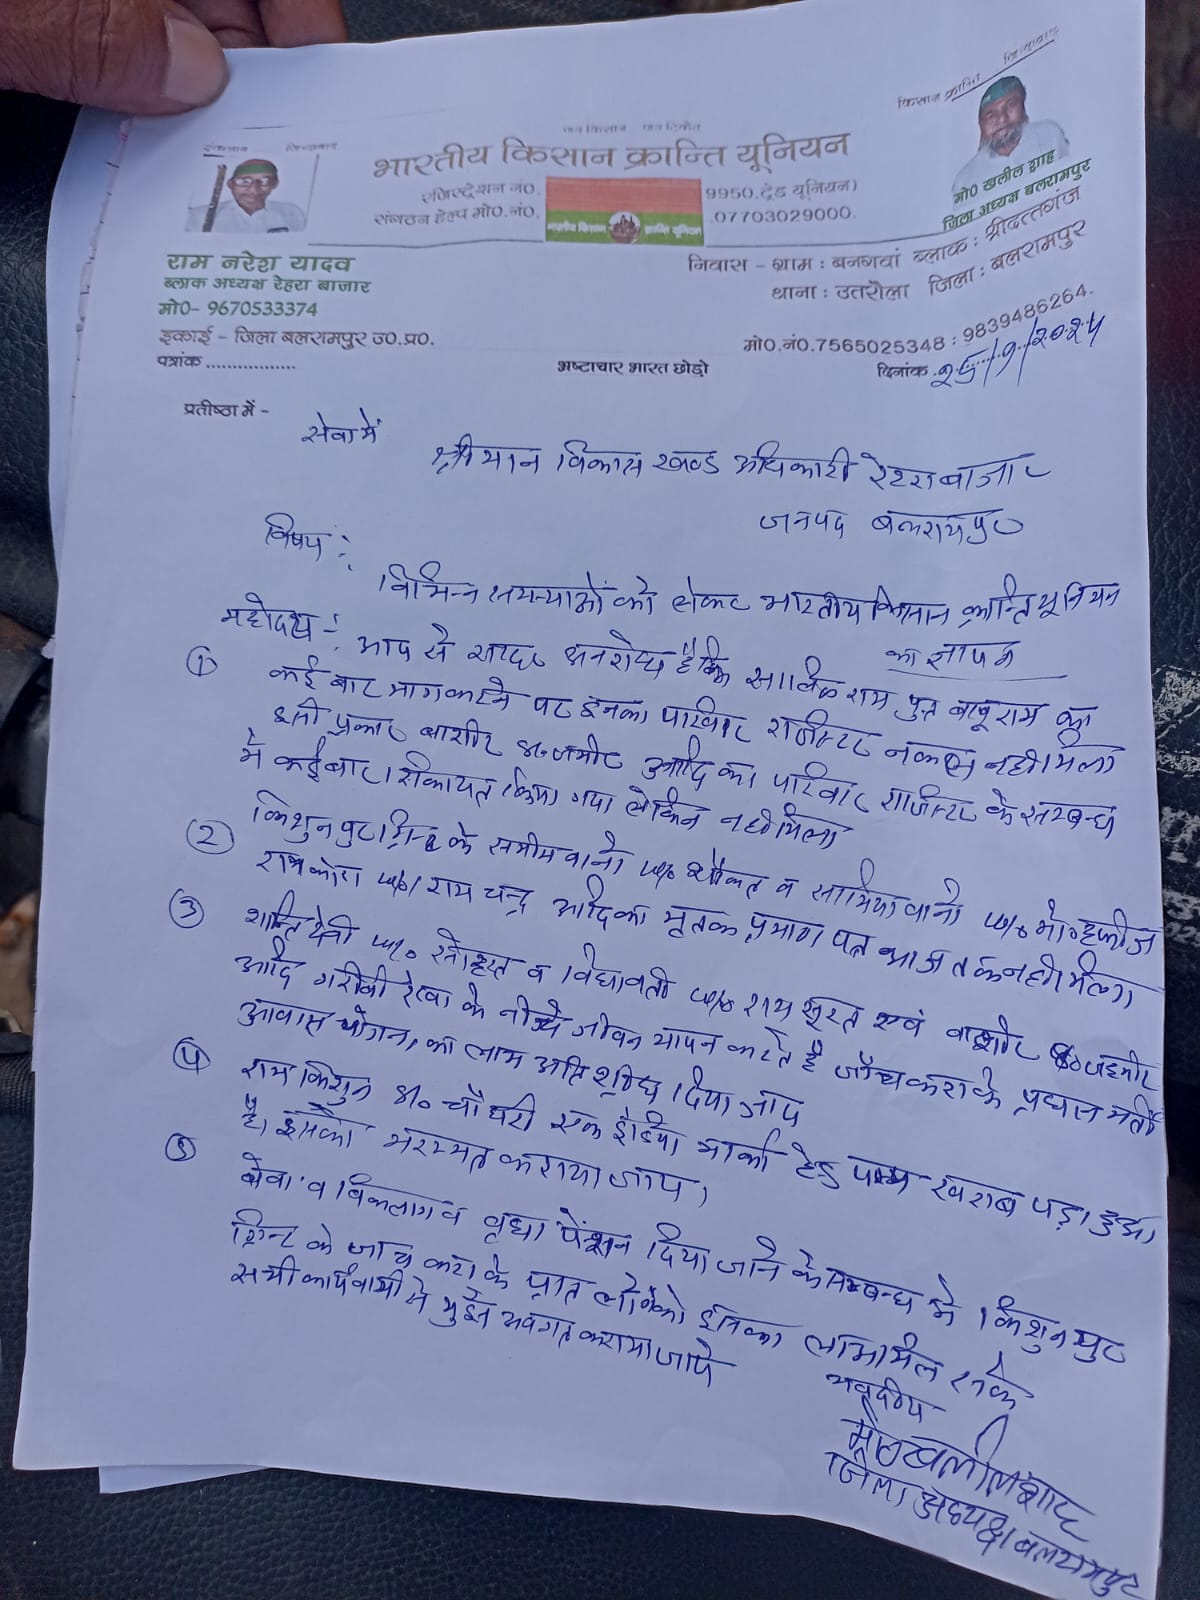 जय किसान जय टिकैत
किसान क्रान्ति जिन्दाबाद
इंकलाब जिन्दाबाद
भारतीय किसान क्रान्ति यूनियन
रजिस्ट्रेशन नं0. 9950.ट्रेड यूनियन)
संगठन हेल्प मो0.नं0. .07703029000.
भारतीय किसान क्रान्ति यूनियन
मो0 खलील शाह
जिला अध्यक्ष बलरामपुर
राम नरेश यादव
ब्लाक अध्यक्ष रेहरा बाजार
मो0- 9670533374
इकाई - जिला बलरामपुर उ0.प्र0.
निवास - ग्राम : बनगवां ब्लाक : श्रीदत्तगंज
थाना : उतरौला जिला : बलरामपुर
मो0.नं0.7565025348 : 9839486264.
पत्रांक ................
भष्टाचार भारत छोड़ो
दिनांक .२६/9/२०२५
प्रतीष्ठा में -
सेवा में
श्रीमान विकास खण्ड अधिकारी रेहराबाजार
जनपद बलरामपुर
विषय :
विभिन्न समस्याओं को लेकर भारतीय किसान क्रान्ति यूनियन
का ज्ञापन
महोदय - आप से सादर अनरोध है कि राम पुत्र बाबूराम का
① कई बार माग करने पर इनका परिवार रजिस्टर नकल नही मिला
इसी प्रकार आदि का परिवार रजिस्टर के सम्बन्ध
मे कई बार शिकायत किया गया लेकिन नही मिला
② किशुनपुर ग्रिन्ट के व
आदि का मृतक प्रमाण पत्र आज तक नही मिला
③ शान्ति देवी व विद्यावती राम सूरत एवं
आदि गरीबी रेखा के नीचे जीवन यापन करते है जाँच कराके प्रधान मंत्री
आवास योजना का लाभ अति शीघ्र दिया जाय
④ राम किशुन चौधरी एक इंडिया मार्का हैड पम्प खराब पड़ा हुआ
है। इसको मरम्मत कराया जाय।
⑤ बेवा व विकलाग व वृधा पेंशन दिया जाने के सम्बन्ध मे किशुनपुर
ग्रिन्ट के जाच करा के पात्र लोगो को इसका लाभ मिल सके
सभी कार्यवाही से मुझे अवगत कराया जाये
भवदीय
मो० खलील शाह
जिला अध्यक्ष बलरामपुर